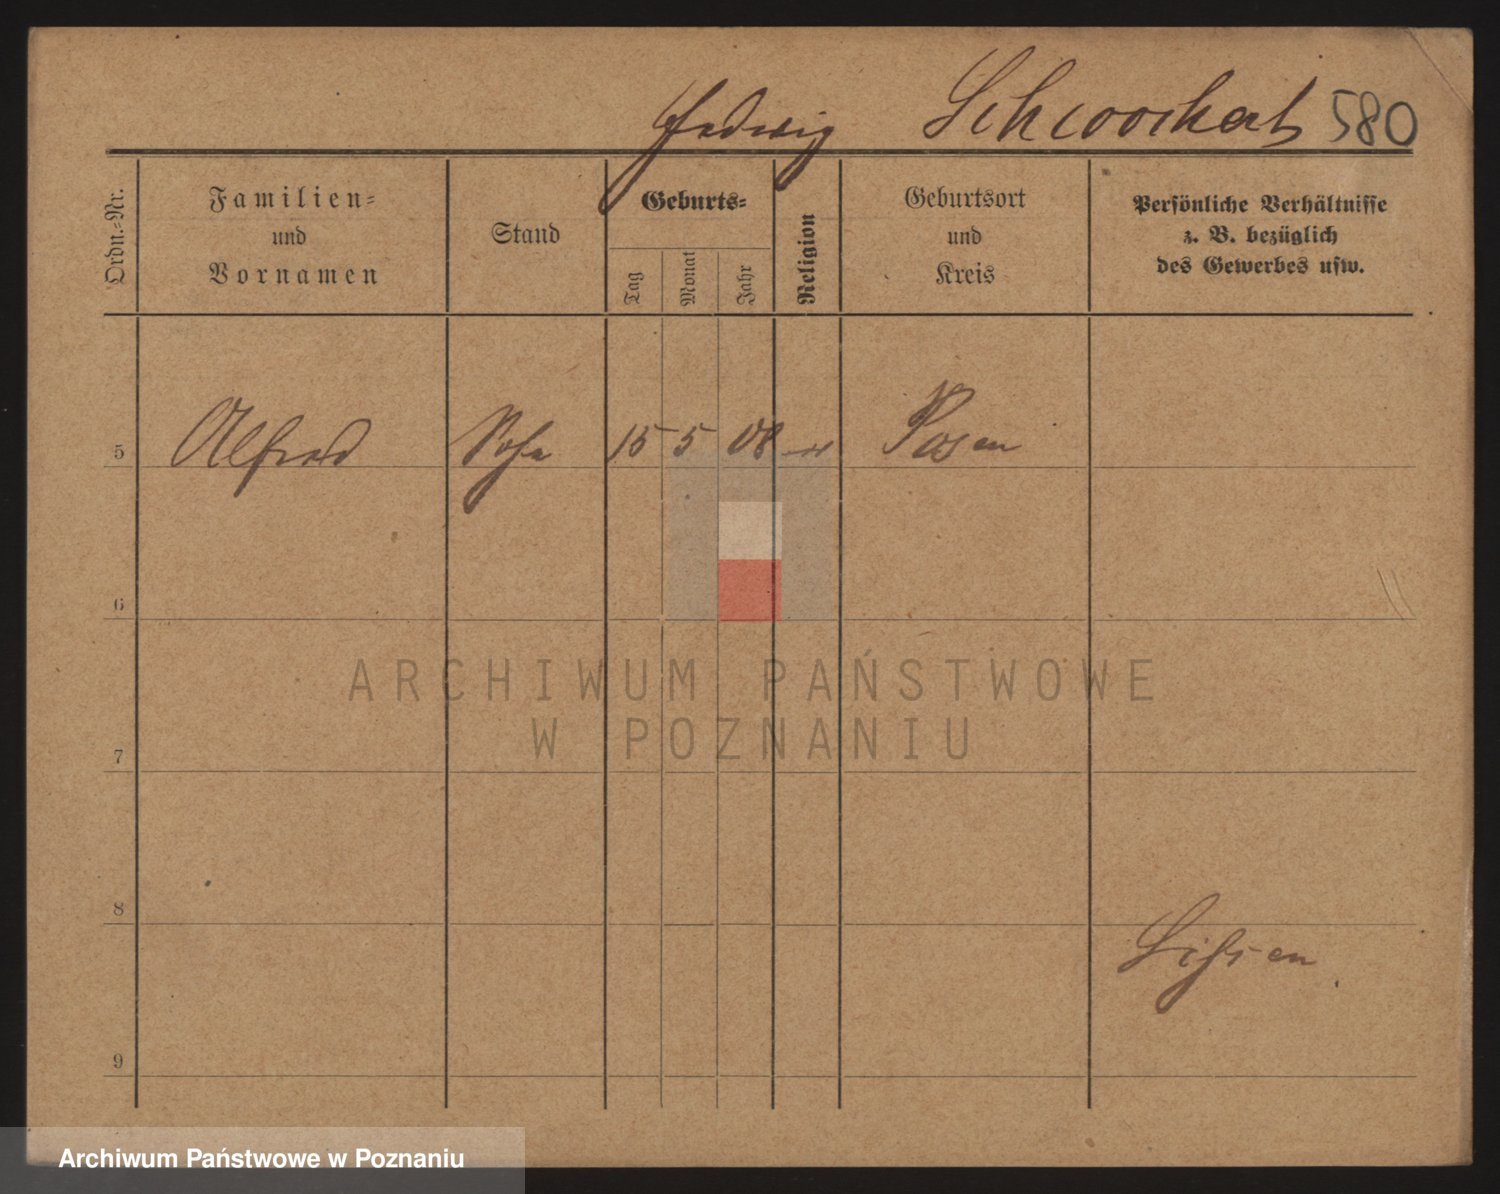 Hedwig Schwochert 580
Ordn.-Nr.
Familien-
und
Vornamen
Stand
Geburts-
Tag
Monat
Jahr
Religion
Geburtsort
und
Kreis
Persönliche Verhältnisse
z. B. bezüglich
des Gewerbes usw.
5 Alfred Sohn 15 5 08 Posen
6
7
8
9
ARCHIWUM PAŃSTWOWE
W POZNANIU
Archiwum Państwowe w Poznaniu